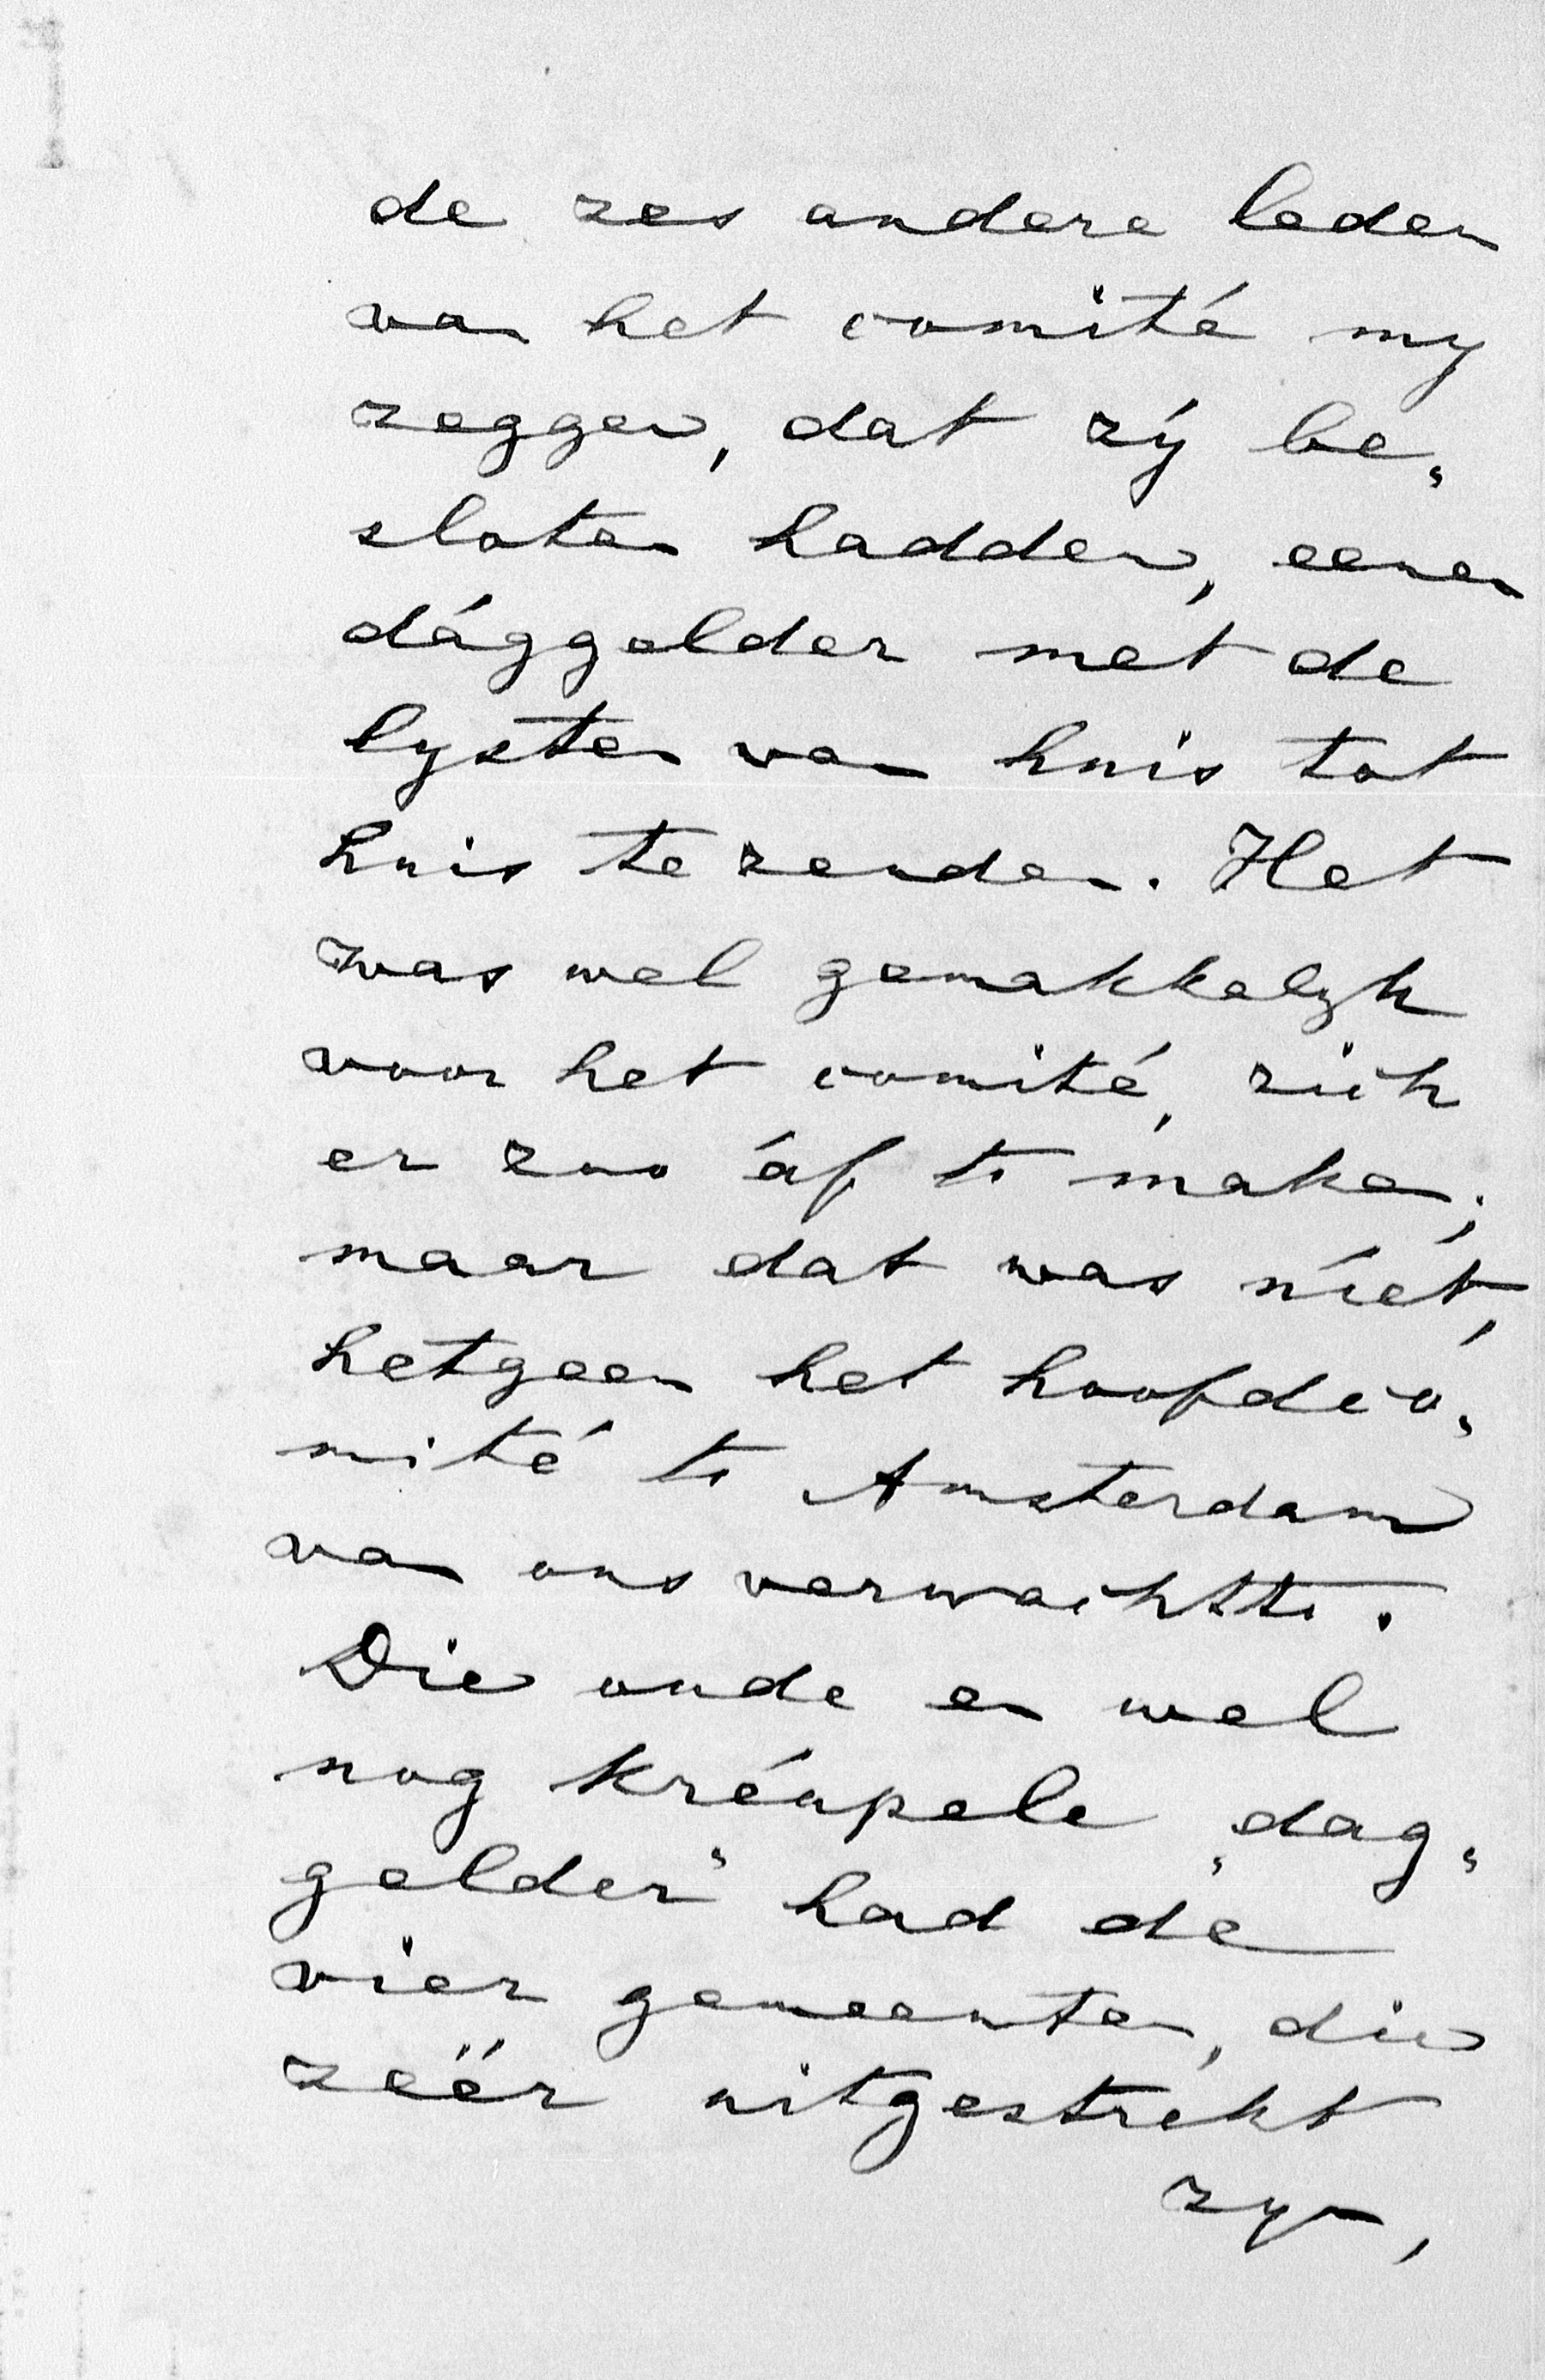 de zes andere leden
van het comité my
zeggen, dat zý be„
sloten hadden, eenen
dággelder met de
lysten van huis tot
huis te zenden. Het
was wel gemakkelyk
voor het comité, zich
er zoo áf te maken;
maar dat was níét,
hetgeen het hoofdco„
mité te Amsterdam
van ons verwachtte.
Die oude en wel
nog kréupele „dag„
gelder" had de
vier gemeenten, die
zéér uitgestrekt
zyn,